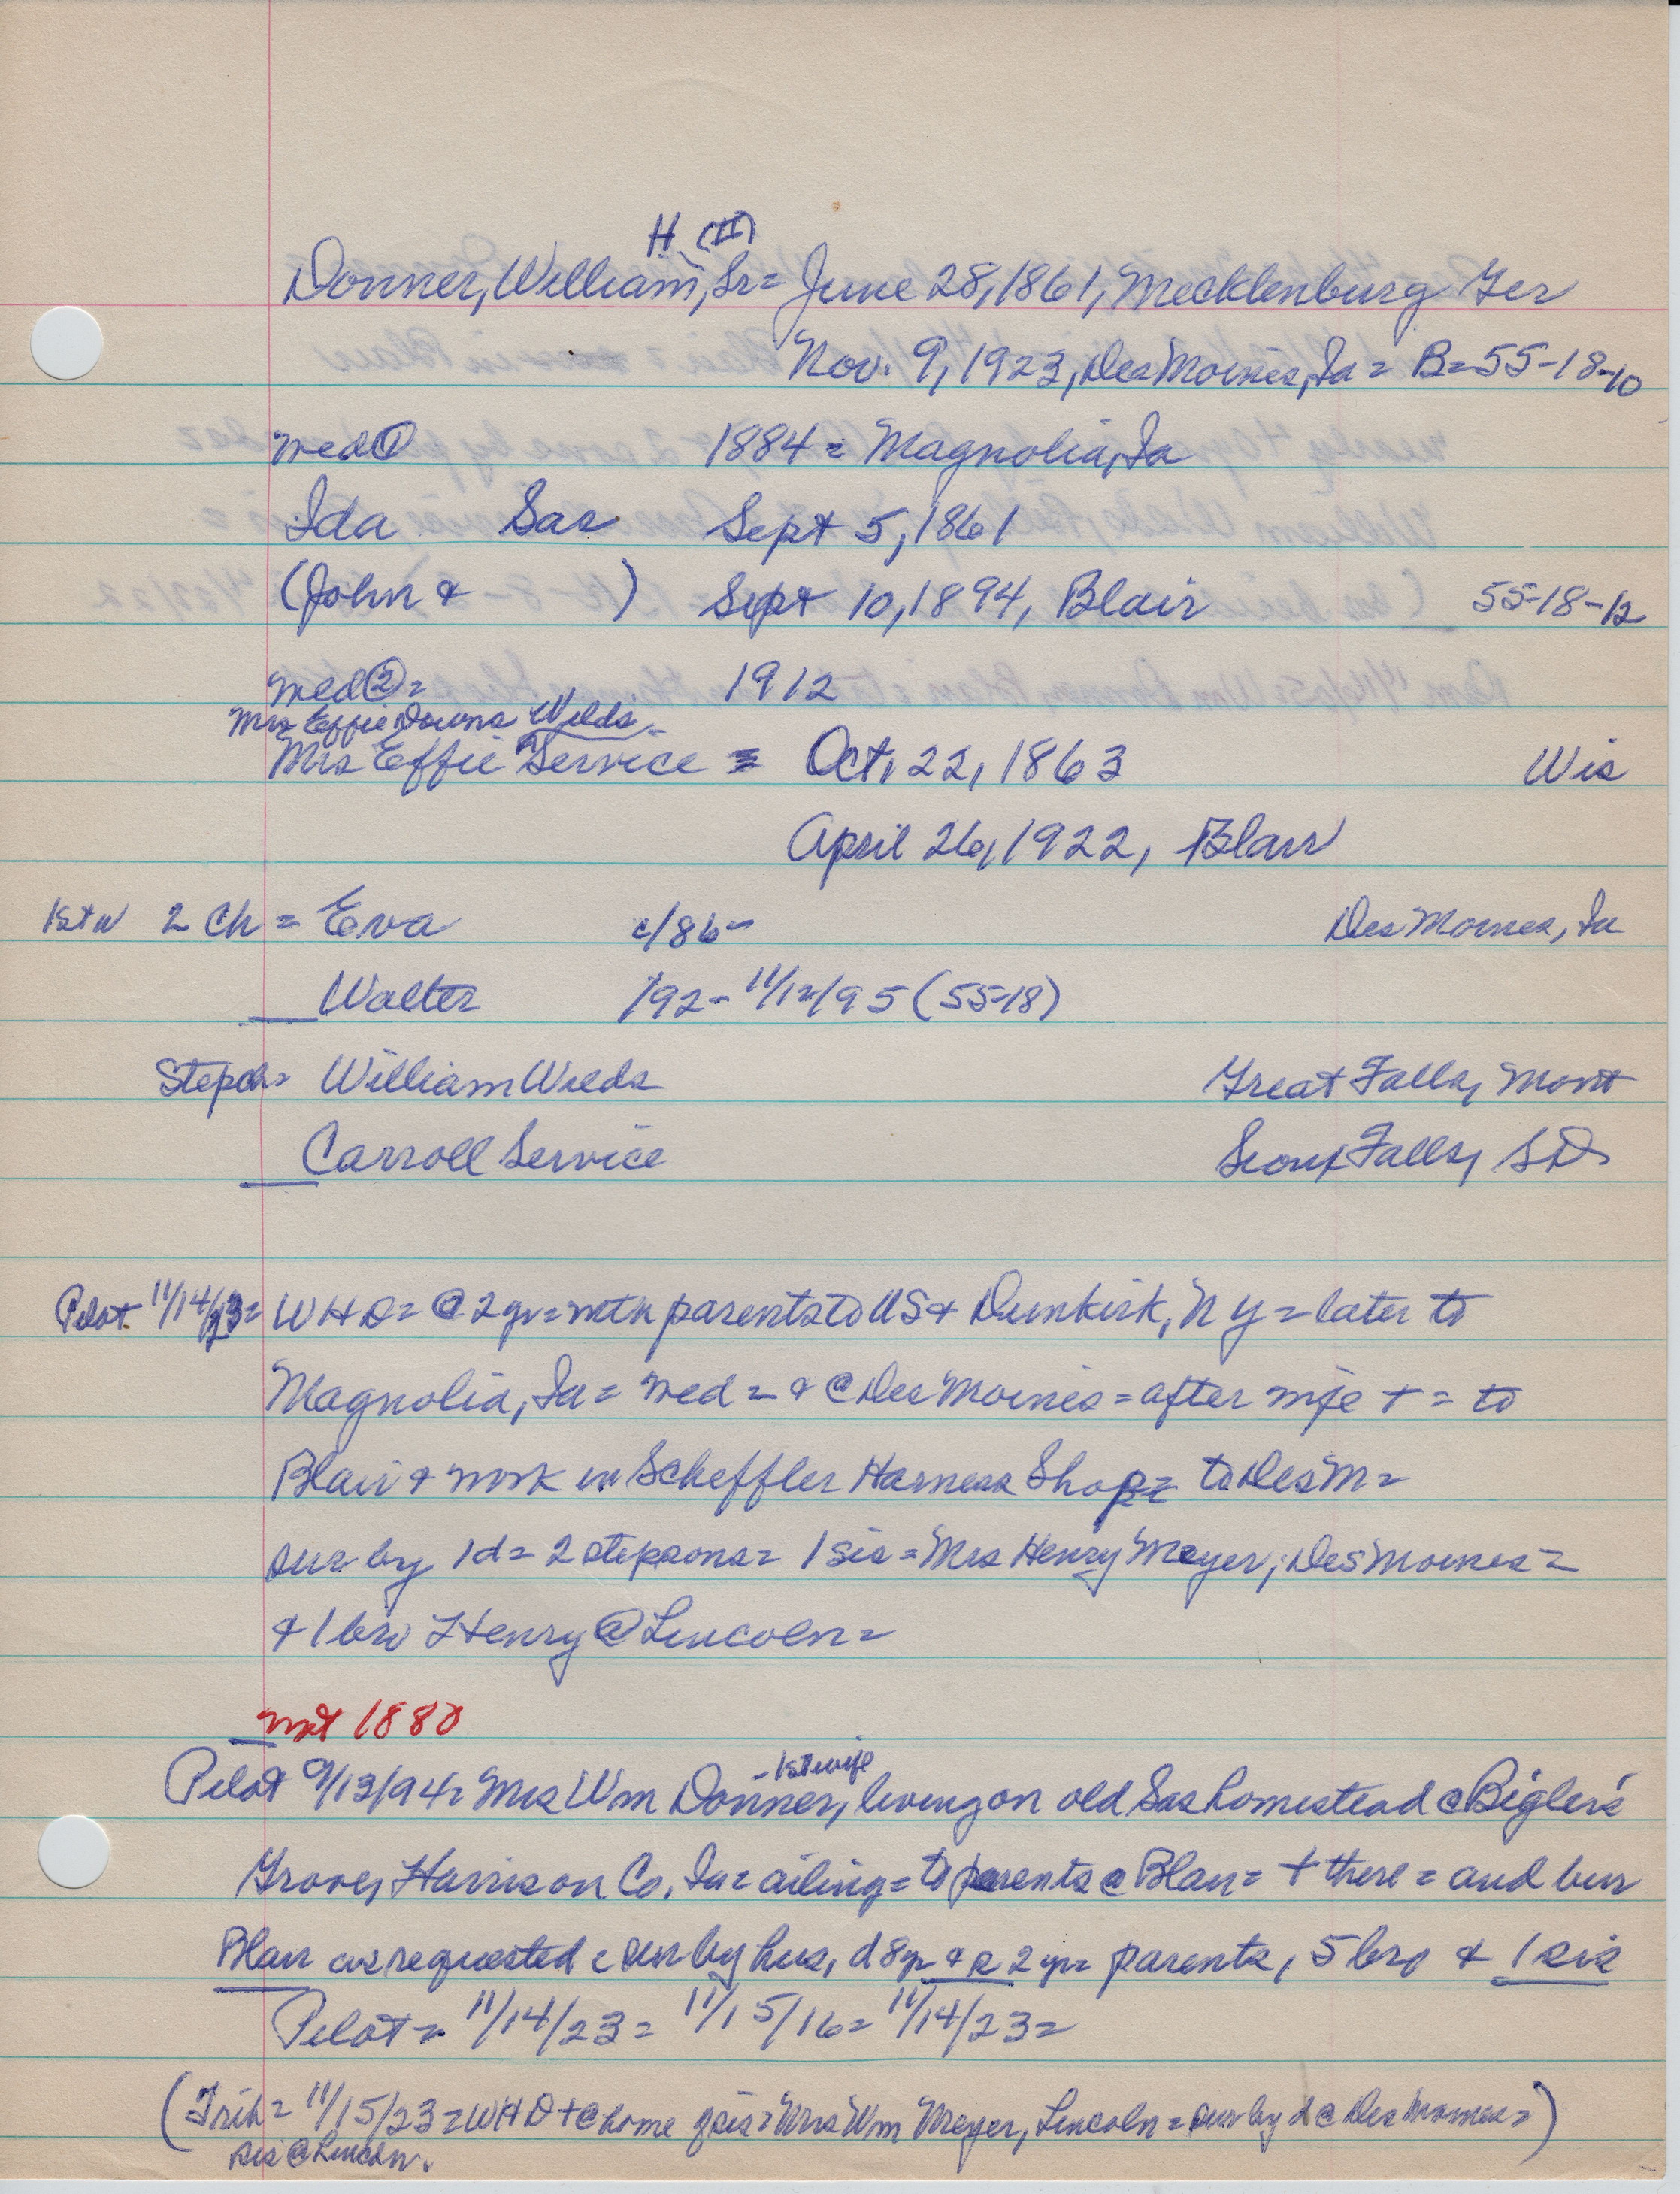 H (II)
Donner, William, Sr = June 28, 1861, Mecklenburg Ger
Nov. 9, 1923, Des Moines, Ia = B = 55-18-10
med ① 1884 = Magnolia, Ia
Ida Sas Sept 5, 1861
(John & ) Sept 10, 1894, Blair 55-18-12
med ② = 1912
Mrs Effie Downs Wilds
Mrs Effie Service = Oct. 22, 1863 Wis
April 26, 1922, Blair
1st w 2 ch = Eva c/86- Des Moines, Ia
Walter /92- 11/12/95 (55-18)
Stepch = William Wilds Great Falls, Mont
Carroll Service Sioux Falls, SD
Pilot 11/14/23 = WHD = @ 2 yr = with parents to US & Dunkirk, N Y = later to
Magnolia, Ia = med = & @ Des Moines = after wife + = to
Blair & work in Scheffler Harness Shop = to Des M =
sur by 1 d = 2 stepsons = 1 sis = Mrs Henry Meyer, Des Moines =
& 1 bro Henry @ Lincoln =
not 1880
- 1st wife
Pilot 9/13/94 = Mrs Wm Donner, living on old Sas homestead @ Bigler's
Grove, Harrison Co. Ia = ailing = to parents @ Blair = + there = and bur
Blair as requested = sur by hus, d 8 yr & s 2 yr = parents, 5 bro & 1 sis
Pilot = 11/14/23 = 11/15/16 = 11/14/23 =
(Trib = 11/15/23 = WHD + @ home of sis = Mrs Wm Meyer, Lincoln = sur by d @ Des Moines =)
sis @ Lincoln.